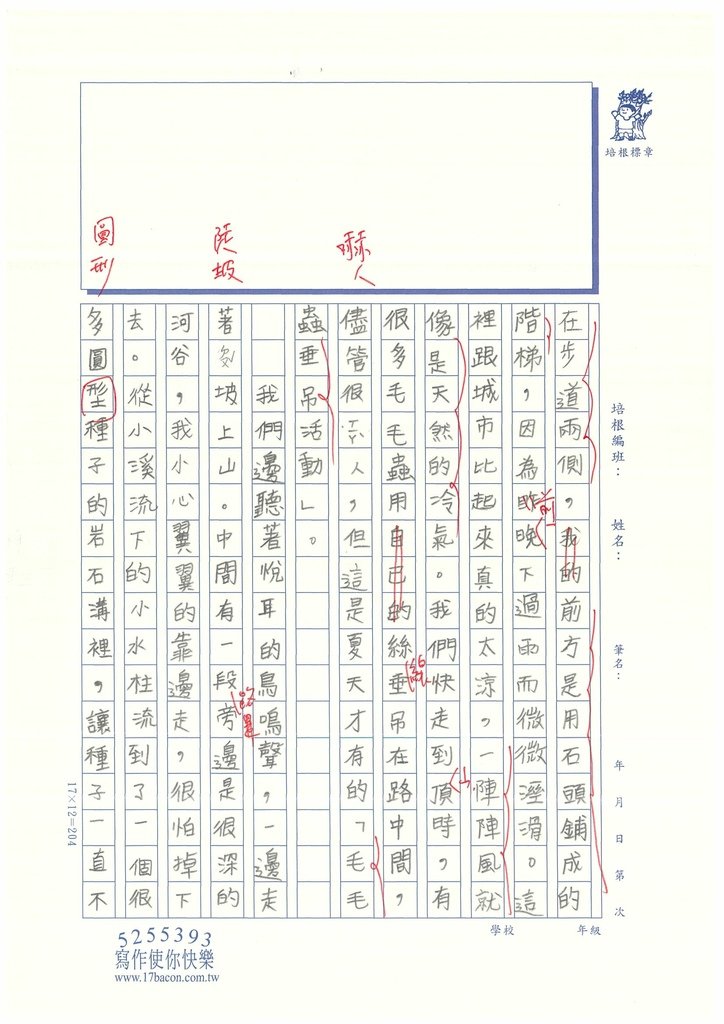 培根標章
圓型
陡坡
嚇人
培根編班：
姓名：
筆名：
年 月 日 第 次
學校
年級
在步道兩側，我的前方是用石頭鋪成的
階梯，因為昨晚下過雨而微微溼滑。這
前
裡跟城市比起來真的太涼。一陣陣風就
像是天然的冷氣。我們快走到頂時，有
山
很多毛毛蟲用自己的絲垂吊在路中間，
線
儘管很人，但這是夏天才有的「毛毛
蟲垂吊活動」。
我們邊聽著悅耳的鳥鳴聲，一邊走
著坡上山。中間有一段旁邊是很深的
路還
河谷，我小心翼翼的靠邊走，很怕掉下
去。從小溪流下的小水柱流到了一個很
多圓型種子的岩石溝裡，讓種子一直不
17×12=204
5255393
寫作使你快樂
www.17bacon.com.tw